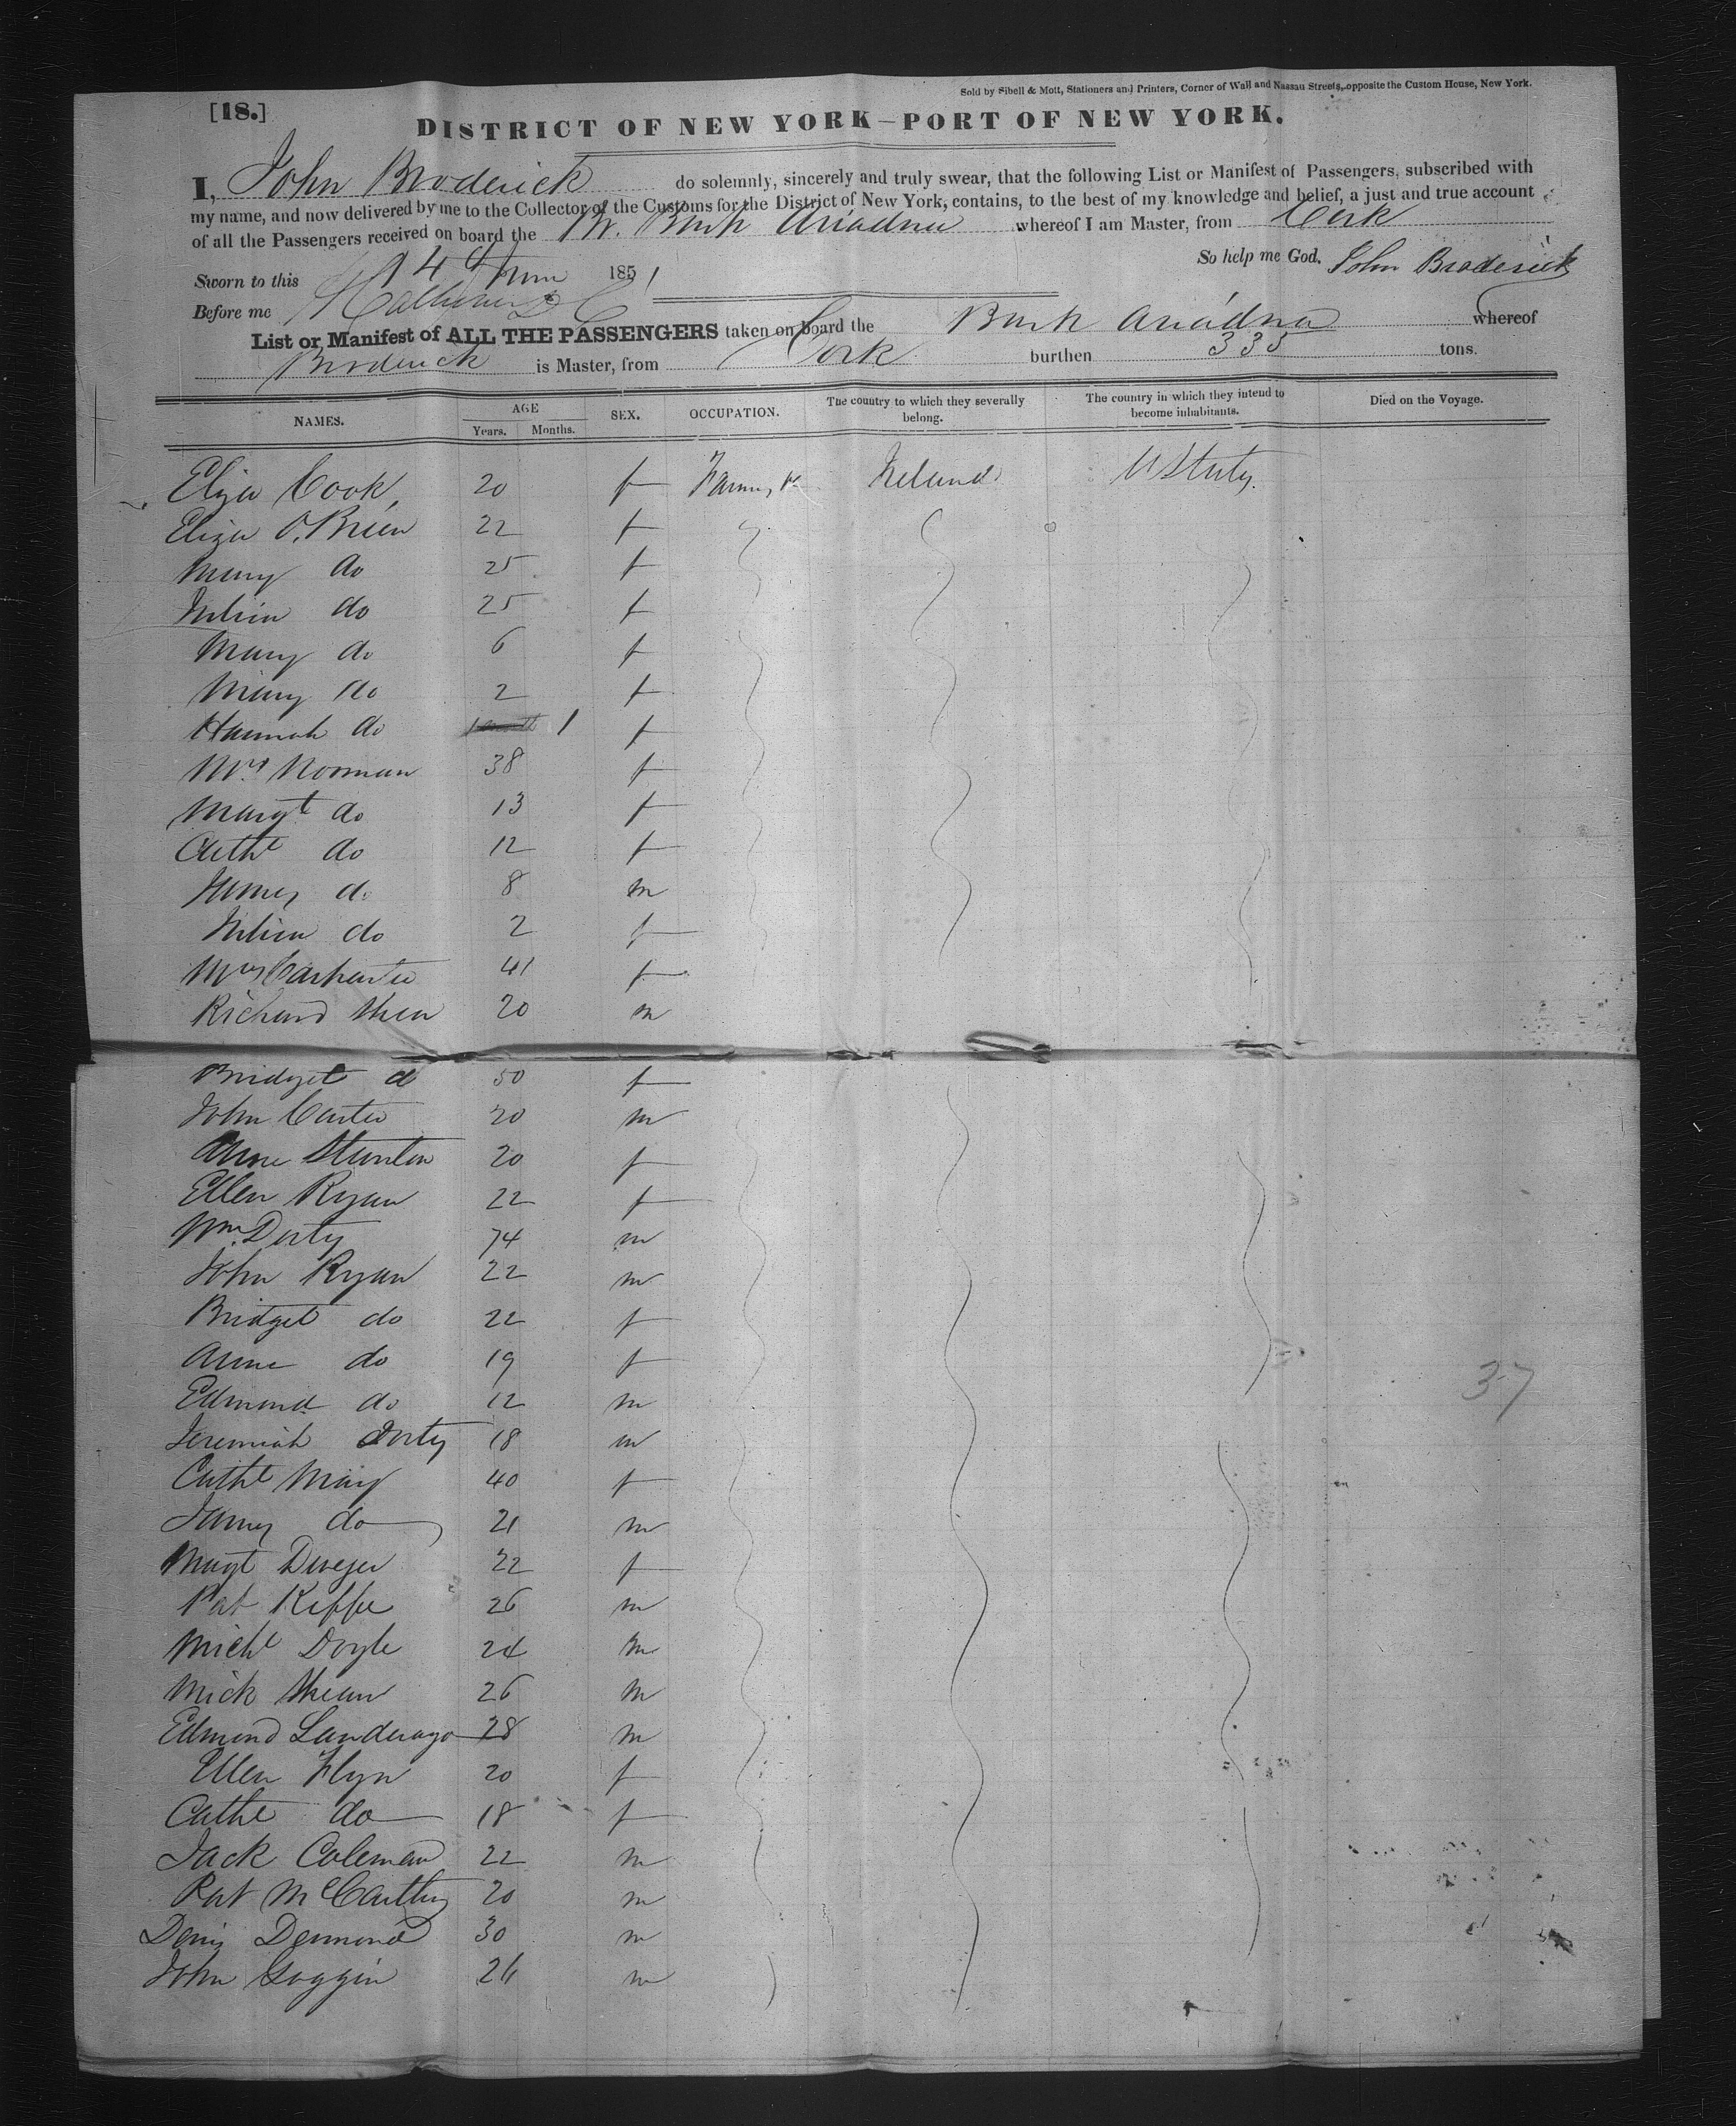 Sold by Sibell & Mott, Stationers and Printers, Corner of Wall and Nassau Streets, opposite the Custom House, New York.
[18.]
DISTRICT OF NEW YORK—PORT OF NEW YORK.
I, John Broderick do solemnly, sincerely and truly swear, that the following List or Manifest of Passengers, subscribed with
my name, and now delivered by me to the Collector of the Customs for the District of New York, contains, to the best of my knowledge and belief, a just and true account
of all the Passengers received on board the Br. Bark Ariadna whereof I am Master, from Cork
So help me God. John Broderick
Sworn to this 14 June 1851
Before me
List or Manifest of ALL THE PASSENGERS taken on board the Bark Ariadna whereof
Broderick is Master, from Cork burthen 335 tons.
NAMES. AGE Years. Months. SEX. OCCUPATION. The country to which they severally belong. The country in which they intend to become inhabitants. Died on the Voyage.
Eliza Cook 20 f Ireland U States
Eliza O'Brien 22 f
Mary do 25 f
Julien do 25 f
Mary do 6 f
Mary do 2 f
Hannah do 1 f
Mrs Noonan 38 f
Margt do 13 f
Cathe do 12 f
James do 8 m
Julien do 2 f
Mrs Carpenter 41 f
Richard Shea 20 m
Bridget d 50 f
John Carter 20 m
Anne Stunton 20 f
Ellen Ryan 22 f
Wm Dorty 74 m
John Ryan 22 m
Bridget do 22 f
Anne do 19 f
Edmond do 12 m
37
Jeremiah Dorty 18 m
Cathe May 40 f
James do 21 m
Magt Dwyer 22 f
Pat Kiffe 26 m
Michl Doyle 24 m
Mick Shean 26 m
Edmond 28 m
Ellen Flyn 20 f
Cathe do 18 f
Jack Coleman 22 m
Pat McCarthy 20 m
Denis Desmond 30 m
John Goggin 26 m